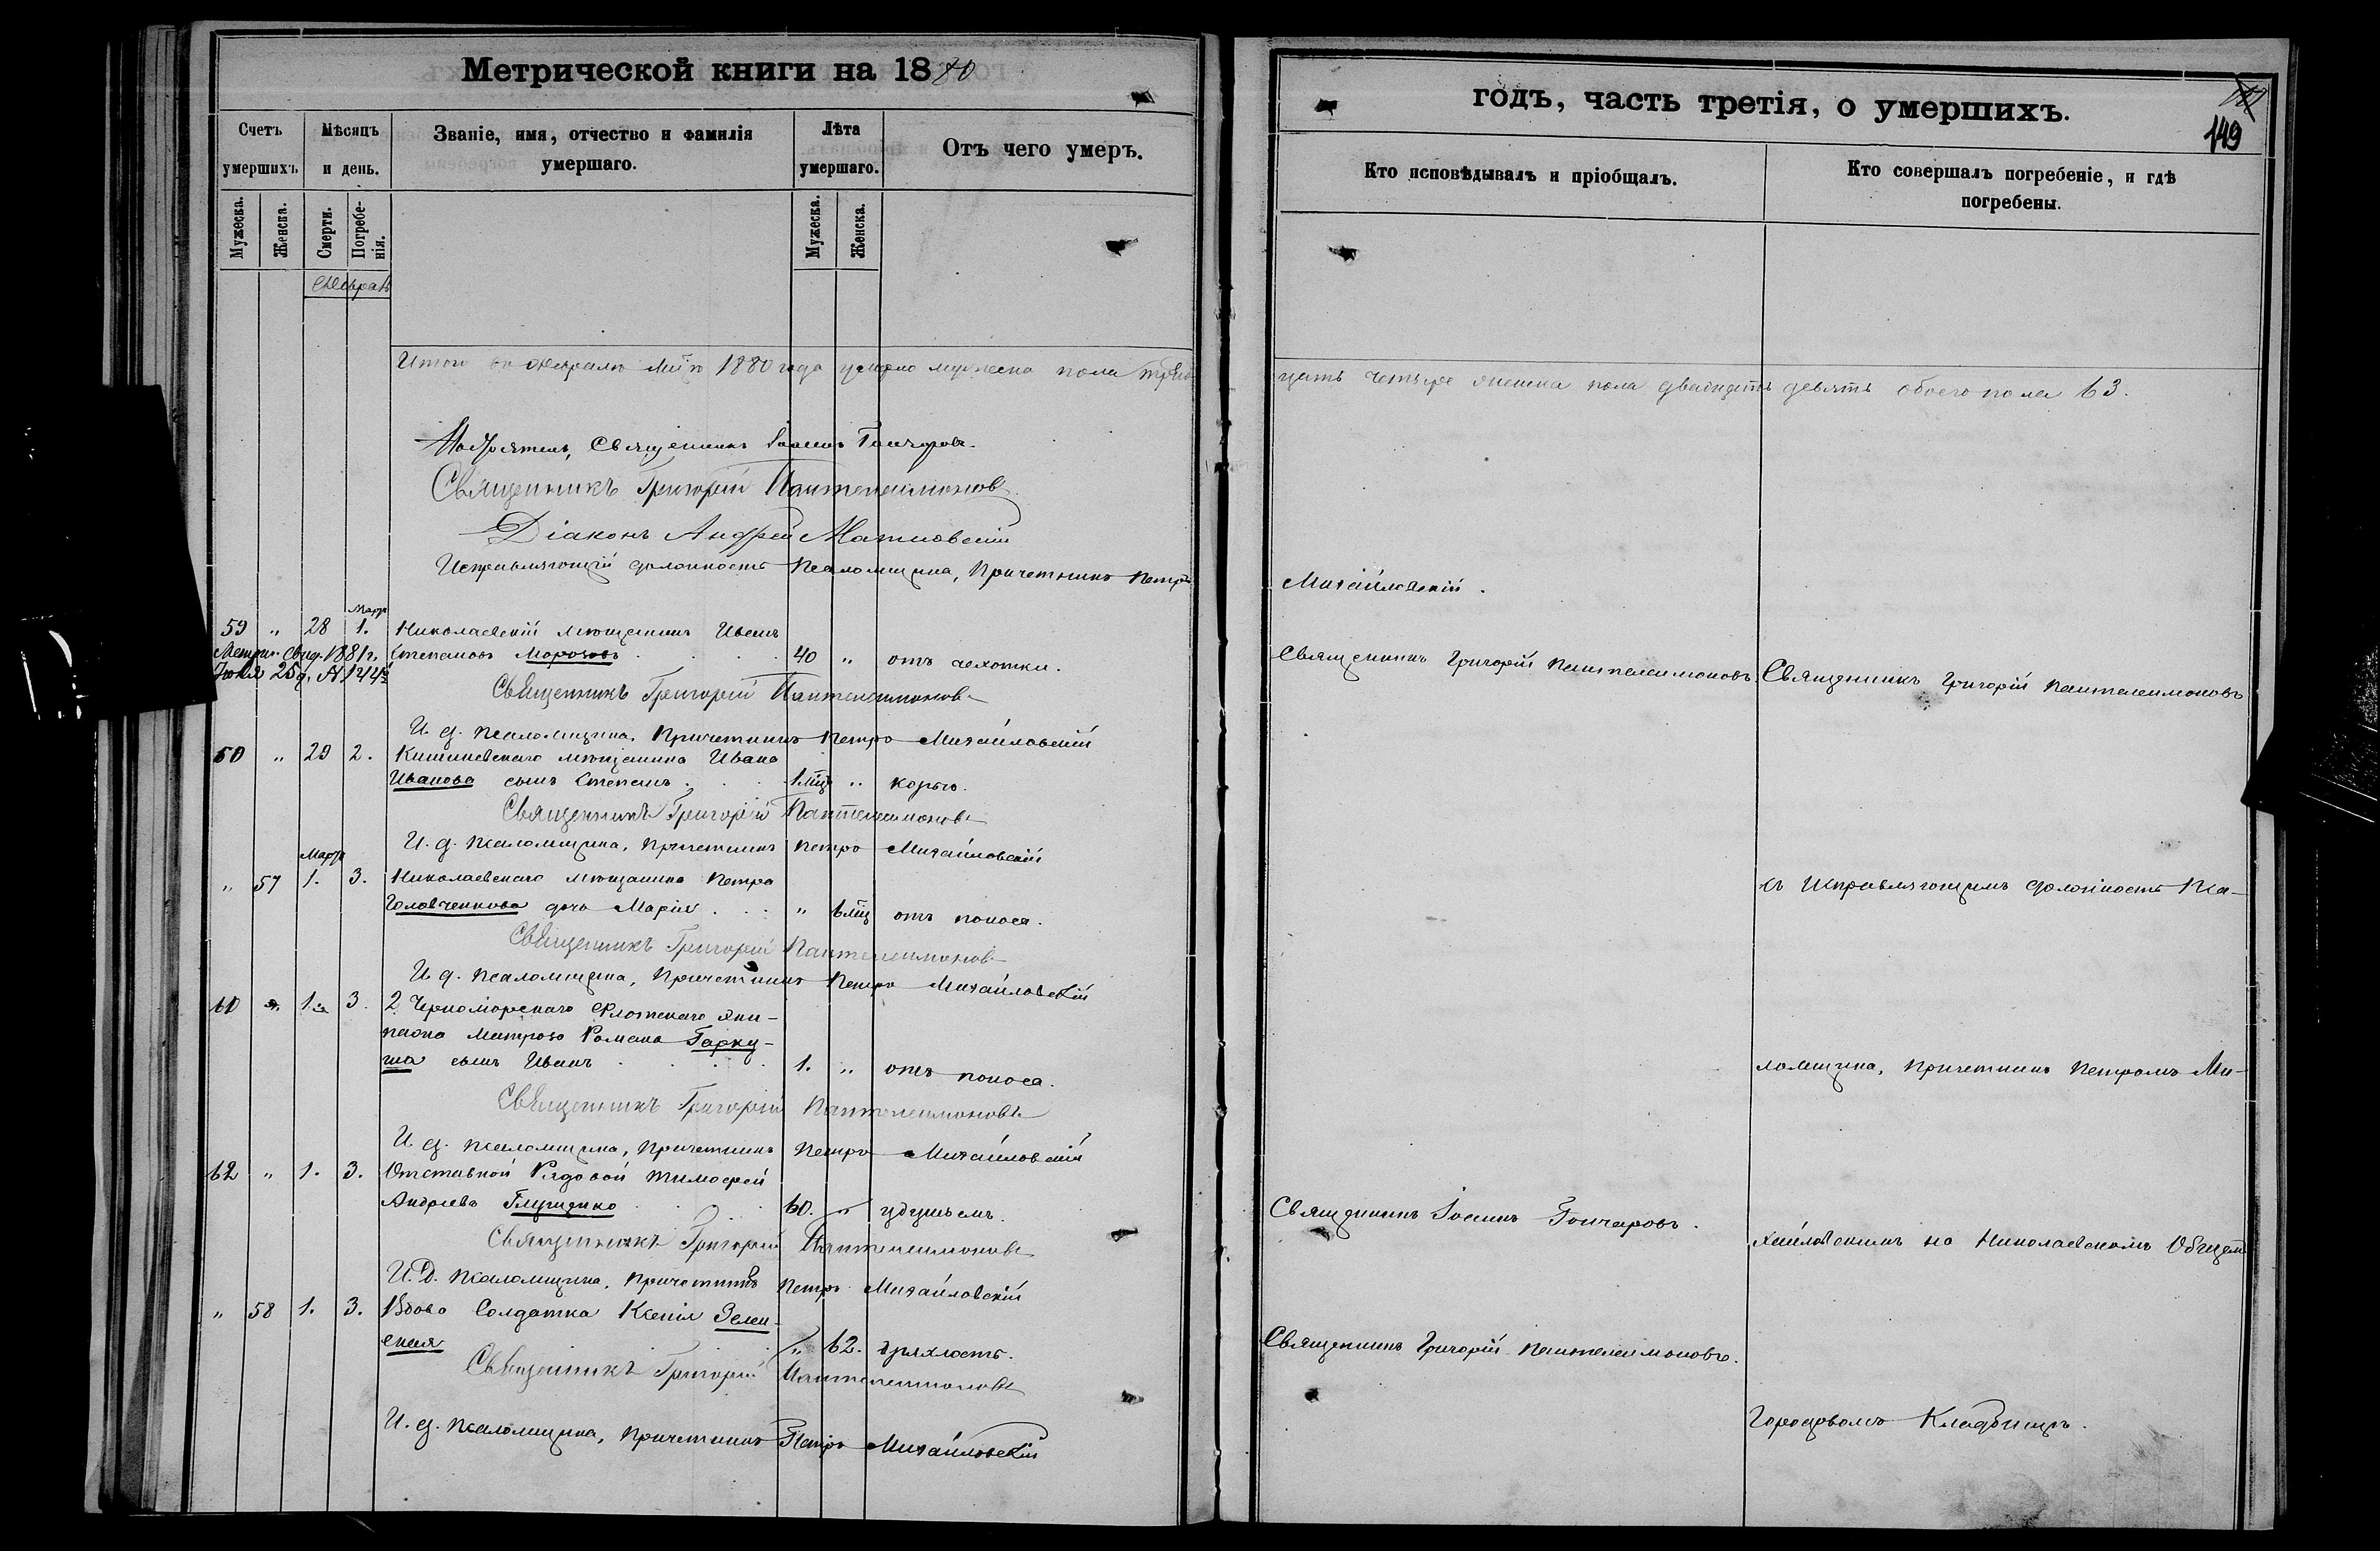 Метрической книги на 1880
годъ, часть третія, о умершихъ.
149
Счетъ умершихъ
Мѣсяцъ и день.
Званіе, имя, отчество и фамилія умершаго.
Лѣта умершаго.
Отъ чего умеръ.
Кто исповѣдывалъ и пріобщалъ.
Кто совершалъ погребеніе, и гдѣ погребены.
Мужеска.
Женска.
Смерти.
Погребенія.
Мужеска.
Женска.
Февраль
Итого въ Февралѣ мцѣ 1880 года умерло мужеска пола трид
цать четыре женска пола двадцать девять обоего пола 63.
Настоятель, Священникъ Іоаннъ Гончаровъ
Священникъ Григорій Пантелеимоновъ
Діаконъ Андрей
Исправляющій должность Псаломщика, Причетникъ Петръ
Михайловскій.
Марта
59 " 28 1. Николаевскій мѣщанинъ Иванъ
Метрич. свид. 1881 г. Степановъ Морозовъ 40 " отъ чахотки. Священникъ Григорій Пантелеимоновъ. Священникъ Григорій Пантелеимоновъ
Іюля 25 д. №
Священникъ Григорій Пантелеимоновъ
И. д. Псаломщика, Причетникъ Петръ Михайловскій
60 " 29 2. Кишиневскаго мѣщанина Ивана
Иванова сынъ Степанъ 1 мцъ " корью.
Священникъ Григорій Пантелеимоновъ
И. д. Псаломщика, Причетникъ Петръ Михайловскій
Марта
" 57 1. 3. Николаевскаго мѣщанина Петра
съ Исправляющимъ должность Пса-
Головченкова дочь Марія " 6 мцъ отъ поноса.
Священникъ Григорій Пантелеимоновъ
И. д. Псаломщика, Причетникъ Петръ Михайловскій
61 " 1. 3. 2 Черноморскаго Флотскаго эки-
пажа Матроса Романа Гарку-
ша сынъ Иванъ 1. " отъ поноса.
ломщика, Причетникъ Петромъ Ми-
Священникъ Григорій Пантелеимоновъ
И. д. Псаломщика, Причетникъ Петръ Михайловскій
62 " 1. 3. Отставной Рядовой Тимофей
Андреевъ Глущенко 60. " удушьемъ. Священникъ Іоаннъ Гончаровъ.
хайловскимъ на Николаевскомъ Общем
Священникъ Григорій Пантелеимоновъ
И. Д. Псаломщика, Причетникъ Петръ Михайловскій
" 58 1. 3. Вдова Солдатка Ксенія Зелен-
ская " 62. дряхлость. Священникъ Григорій Пантелеимоновъ.
Священникъ Григорій Пантелеимоновъ
Городовомъ Кладбищѣ.
И. д. Псаломщика, Причетникъ Петръ Михайловскій